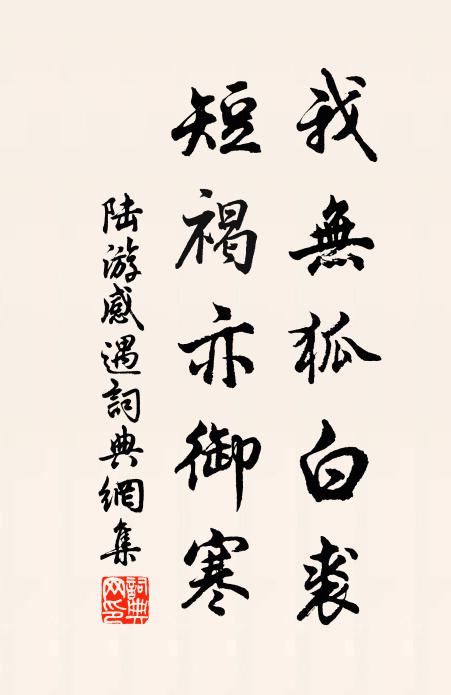 我無狐白裘
短褐亦御寒
陆游感遇詞典網集
詞典网印